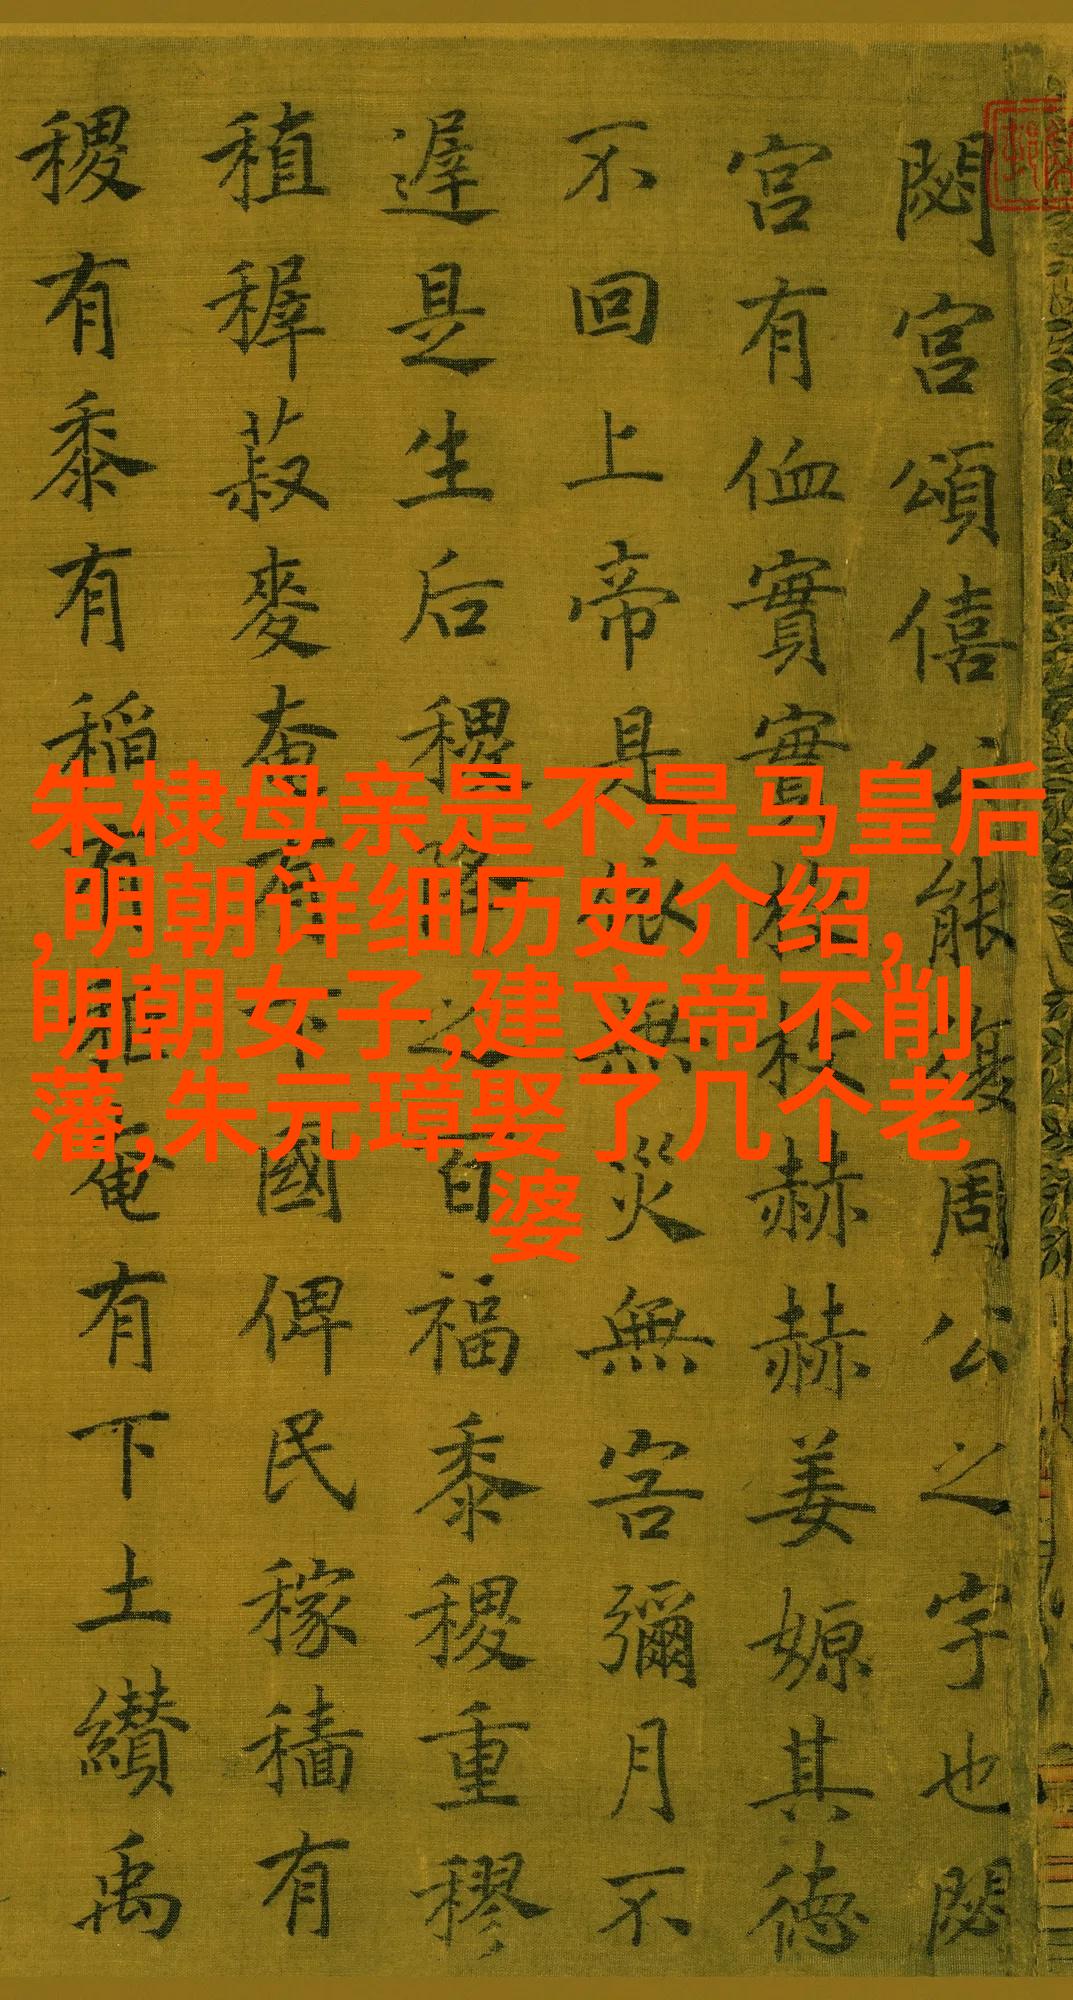 閟宮頌僖公能復周公之宇也閟
宮有侐實實枚枚赫赫姜嫄其德
不回上帝是依無災無害彌月不
遲是生后稷降之百福黍稷重穋
稙稺菽麥奄有下國俾民稼穡有
稷有黍有稻有秬奄有下土纘禹
朱棣母亲是不是马皇后
,明朝详细历史介绍,
明朝女子,建文帝不削
藩,朱元璋娶了几个老
婆